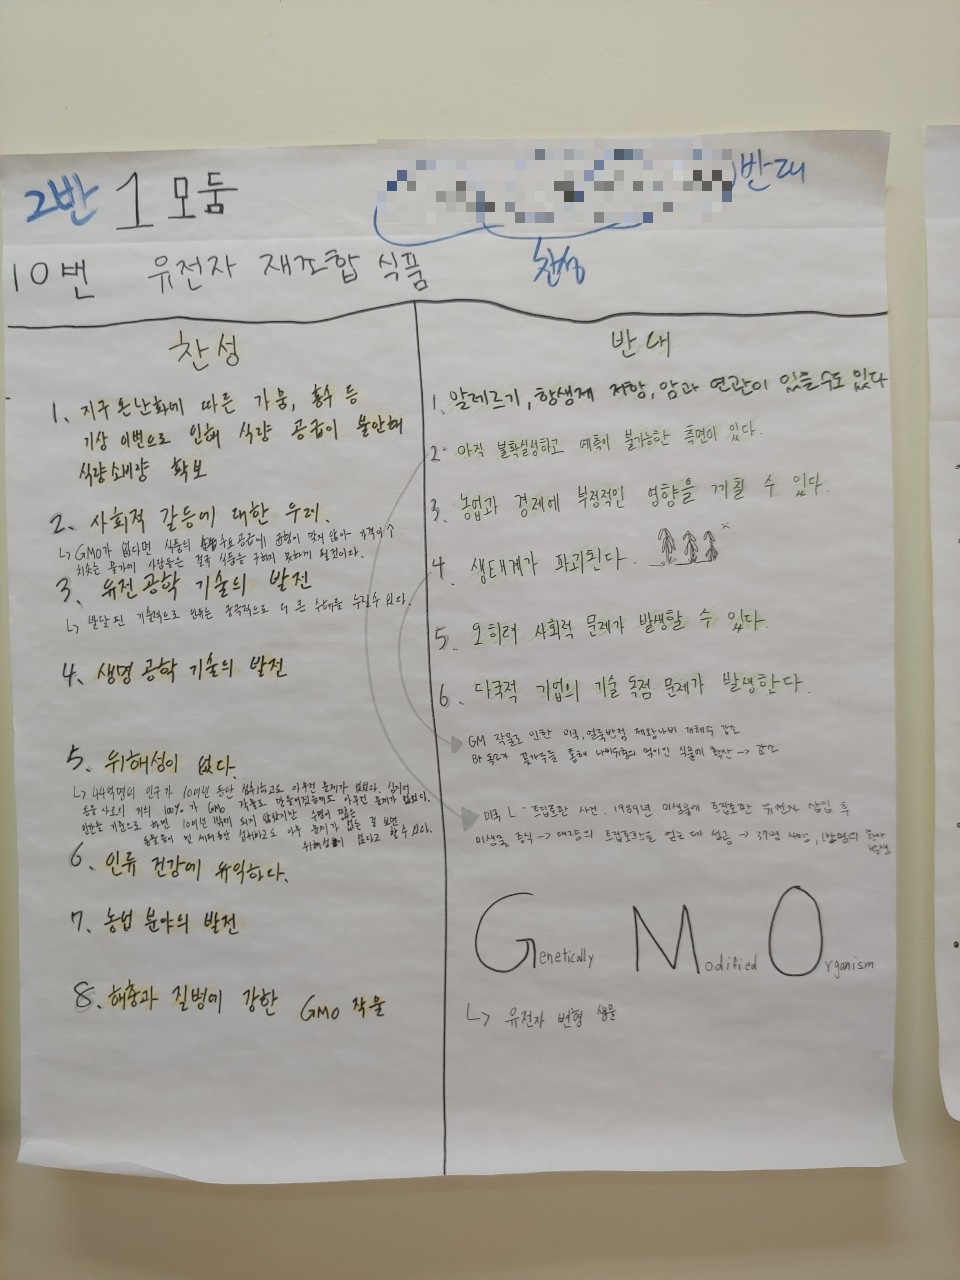 2반 1모둠
반대
찬성
10번 유전자 재조합 식품
찬성
1. 지구온난화에 따른 가뭄, 홍수 등
기상 이변으로 인해 식량 공급이 불안해
식량소비량 확보
2. 사회적 갈등에 대한 우려.
↳ GMO가 없다면 식품의 수요공급에 균형이 맞지 않아 가격이 ↑
치솟는 물가에 사람들은 결국 식품을 구하지 못하게 될것이다.
3. 유전공학 기술의 발전
↳ 발달된 기술력으로 인류는 궁극적으로 더 큰 수혜를 누릴수 있다.
4. 생명공학 기술의 발전
5. 위해성이 없다.
↳ 44억명의 인구가 10여년 동안 섭취하고도 아무런 문제가 없었다. 심지어
동물 사료의 거의 100%가 GMO 작물로 만들어졌음에도 아무런 문제가 없었다.
인간을 기준으로 하면 10여년 밖에 되지 않았지만 수명이 짧은
동물들이 몇 세대에 걸쳐 섭취하고도 아무 문제가 없는 걸 보면
위해성이 없다고 할 수 있다.
6. 인류 건강에 유익하다.
7. 농업 분야의 발전
8. 해충과 질병에 강한 GMO 작물
반대
1. 알레르기, 항생제 저항, 암과 연관이 있을수도 있다
2. 아직 불확실성하고 예측이 불가능한 측면이 있다.
3. 농업과 경제에 부정적인 영향을 끼칠 수 있다.
4. 생태계가 파괴된다.
5. 오히려 사회적 문제가 발생할 수 있다.
6. 다국적 기업의 기술 독점 문제가 발생한다.
GM 작물로 인한 미국, 얼룩반점 제왕나비 개체수 감소
Bt 독소가 꽃가루를 통해 나비유충의 먹이인 식물에 확산 → 감소
미국 L-트립토판 사건. 1989년 미생물에 트립토판 유전자 삽입 후
미생물 증식 → 대량의 트립토판을 얻는데 성공 → 37명 사망, 환자
발생
Genetically Modified Organism
↳ 유전자 변형 생물